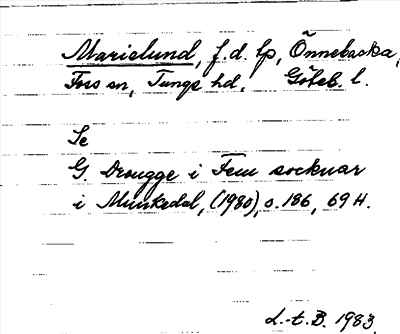 Marielund, f.d. lp, Önnebacka,
Foss sn, Tunge hd, Göteb. l.
Se
G. Drougge i Fem socknar
i Munkedal, (1980), s. 186, 69 H.
L.-t. B. 1983.